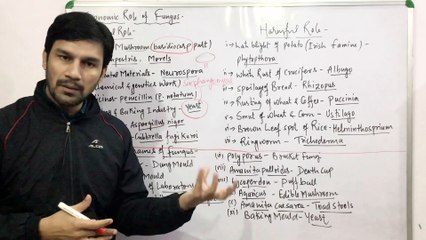 Economic Role of Fungus
Role -
Mushroom (basidiocarp part)
campestris, Morels
Materials - Neurospora
chemical & genetics work)
- Penicillin (P. notatum)
& Baking Industry - Yeast
Aspergillus niger
Gibberella fujikuroi
names of fungus -
- Dung Mould
of Laboratories
Harmful Role -
i → Late blight of potato (Irish famine) -
- phytopthora
ii → White Rust of crucifers - Albugo
iii → Spoilage of Bread - Rhizopus
iv → Rusting of wheat & Coffee - Puccinia
v → Smut of wheat & Corn - Ustilago
vi → Brown Leaf spot of Rice - Helminthosprium
vii → Ringworm - Trichoderma
(vi) Polyporus - Bracket Fungi
(vii) Amanita palloides - Death Cup
Lycoperdon - Puffball
Agaricus - Edible Mushroom
(x) Amanita caesarea - Toad stools
(xi) Baking Mould - Yeast